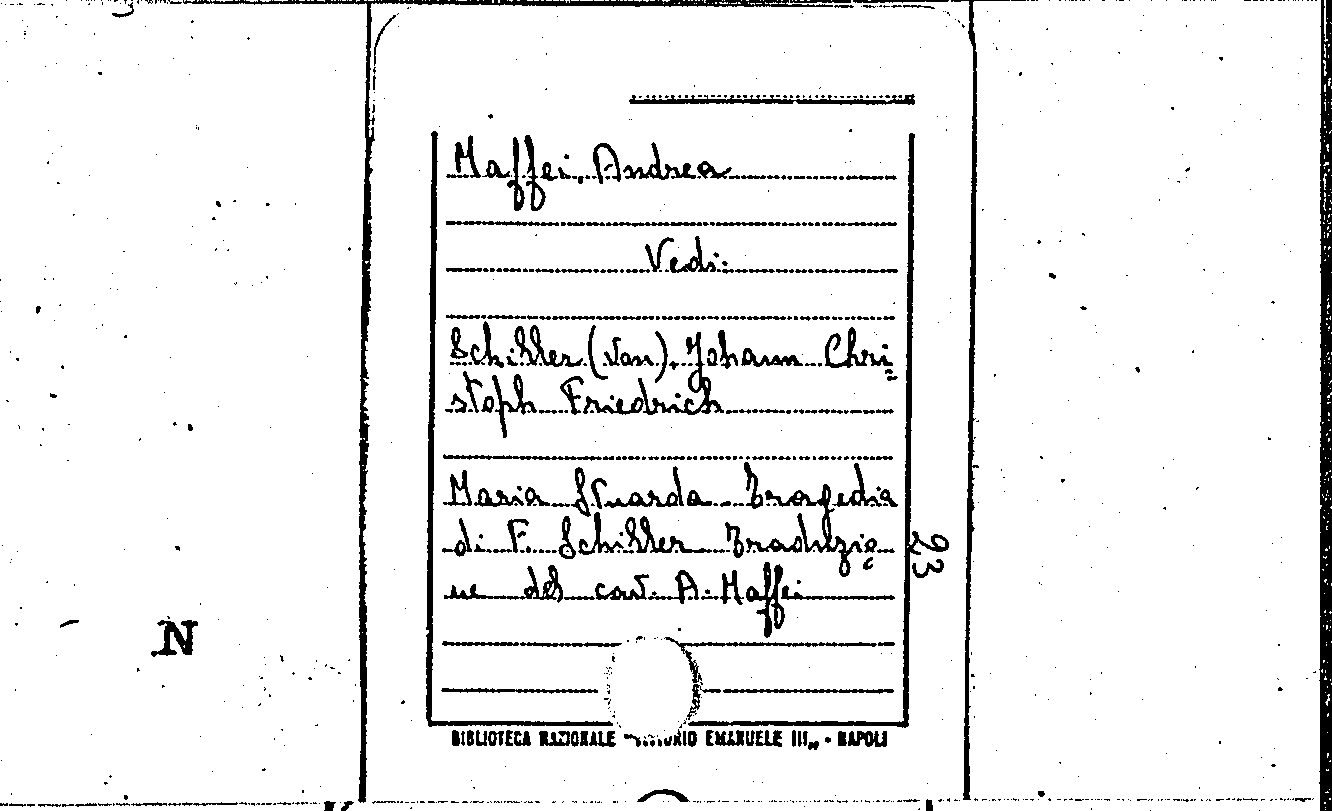 Maffei, Andrea
Vedi:
Schiller (von), Johann Chri=
stoph Friedrich
Maria Stuarda Tragedia
di F. Schiller Traduzio=
ne del cav. A. Maffei
23
N
BIBLIOTECA NAZIONALE "VITTORIO EMANUELE III„ - NAPOLI